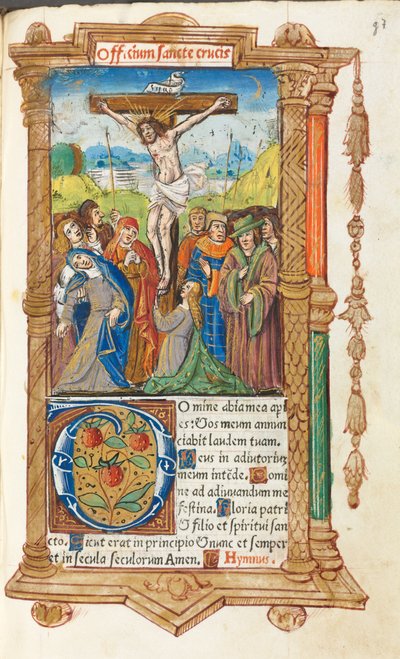 97
Officium sancte crucis
INRI
Omine labia mea api
es: Vos meum annun
ciabit laudem tuam.
Deus in adiutorium
meum intēde. Domi
ne ad adiuvandum me
festina. Gloria patri
& filio et spiritui san
cto. Sicut erat in principio & nunc et semper
et in secula seculorum Amen. Hymnus.